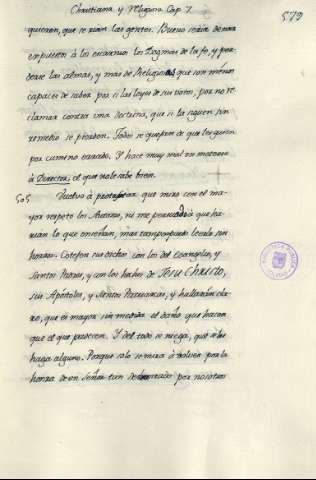 Christiana y Religiosa Cap. 7.
579
quieran, que se rian las gentes. Bueno seria dexar
expuestos à los escarnios los Dogmas de la fe, y per-
derse las almas, y mas de Religiosas que son menos
capaces de saber por si las leyes de sus votos, por no re-
clamar contra una doctrina, que si la siguen sin
remedio se pierden. Todos se quejaran de que los guien
por camino errado. Y hace muy mal en meterse
à Director, el que no lo sabe bien.
505 Vuelvo à protestar que miro con el ma-
yor respeto los Autores, ni me persuadia que ha-
rian lo que enseñan, mas tampoco
honrar. Cotejen sus dichos con los del Evangelio, y
Santos Padres, y con los hechos de Jesu Christo,
sus Apóstoles, y Santos Patriarcas, y hallarán cla-
ro, que es mayor sin medida el daño que hacen
que el que parecen. Y del todo se niega, que se les
haga alguno. Porque solo se mira à volver por la
honra de un Señor tan deshonrado por nosotros